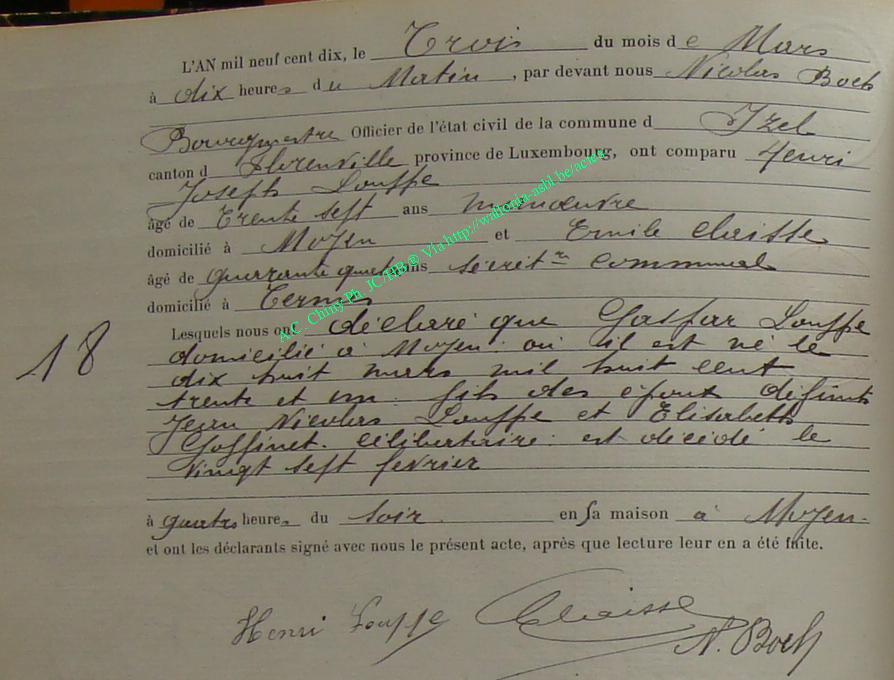 L'AN mil neuf cent dix, le Trois du mois de Mars
à dix heures du Matin, par devant nous Nicolas Boch
Bourgmestre Officier de l'état civil de la commune d Izel
canton d Florenville province de Luxembourg, ont comparu Henri
Joseph Louppe
âgé de Trente sept ans manoeuvre
domicilié à Moyen et Emile Claisse
âgé de quarante ans secrétre communal
domicilié à Termes
Lesquels nous ont déclaré que Gaspar Louppe
domicilié à Moyen : où il est né le
18
dix huit mars mil huit cent
trente et un. fils des époux défunts
Jean Nicolas Louppe et Elisabeth
Goffinet. célibataire : est décédé le
vingt sept fevrier
à quatre heures du soir. en sa maison à Moyen.
et ont les déclarants signé avec nous le présent acte, après que lecture leur en a été faite.
Henri Louppe Claisse
N. Boch
A.C. Chiny-Ph. JC/HB ® Via http://wallonia-asbl.be/actes